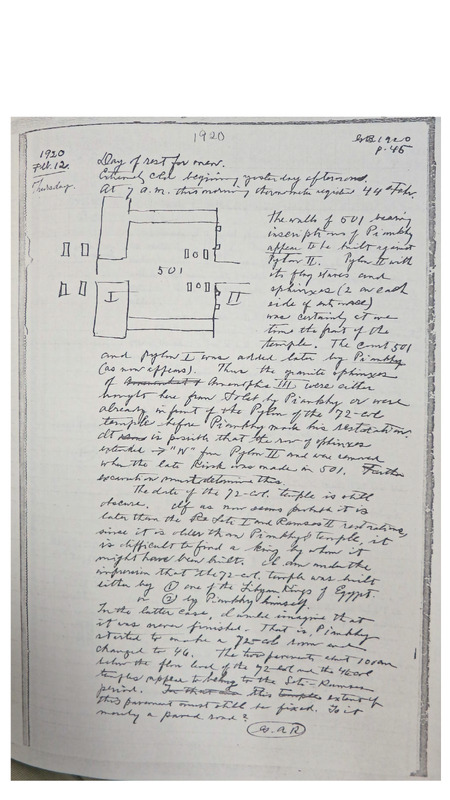 1920
1920
p. 45
1920
Feb. 12.
Thursday.
Day of rest for men.
Extremely cold beginning yesterday afternoon.
At 7 a.m. this morning thermometer 44° Fahr.
The walls of 501 bearing
inscriptions of Piankhy
appear to be built against
Pylon II. Pylon II with
its flag staves and
sphinxes (2 on each
side of entrance)
was certainly at one
time the front of the
temple. The court 501
501
I
II
and Pylon I was added later by Piankhy
(as now appears). Thus the granite sphinxes
of Amenophis III were either
brought here from Soleb by Piankhy or were
already in front of the Pylon of the 72-col
temple before Piankhy made his restoration.
It is possible that the row of sphinxes
extended → "N" from Pylon II and was removed
when the late Kiosk was made in 501. Further
excavation must determine this.
The date of the 72-col. temple is still
obscure. If as now seems probable it is
later than the Seto I and Ramses II restorations,
since it is older than Piankhy's temple, it
is difficult to find a king by whom it
might have been built. I am under the
impression that the 72-col. temple was built
either by ① one of the Libyan Kings of Egypt.
or ② by Piankhy himself.
In the latter case, I would imagine that
it was never finished. That is, Piankhy
started to make a 72-col room and
changed to 46. The two pavements about 10 cm
below the floor level of the 72-col and the 46-col
temples appear to belong to the Seto-Ramses
period. The extent of
this pavement must still be fixed. Is it
merely a paved road?
G.A.R